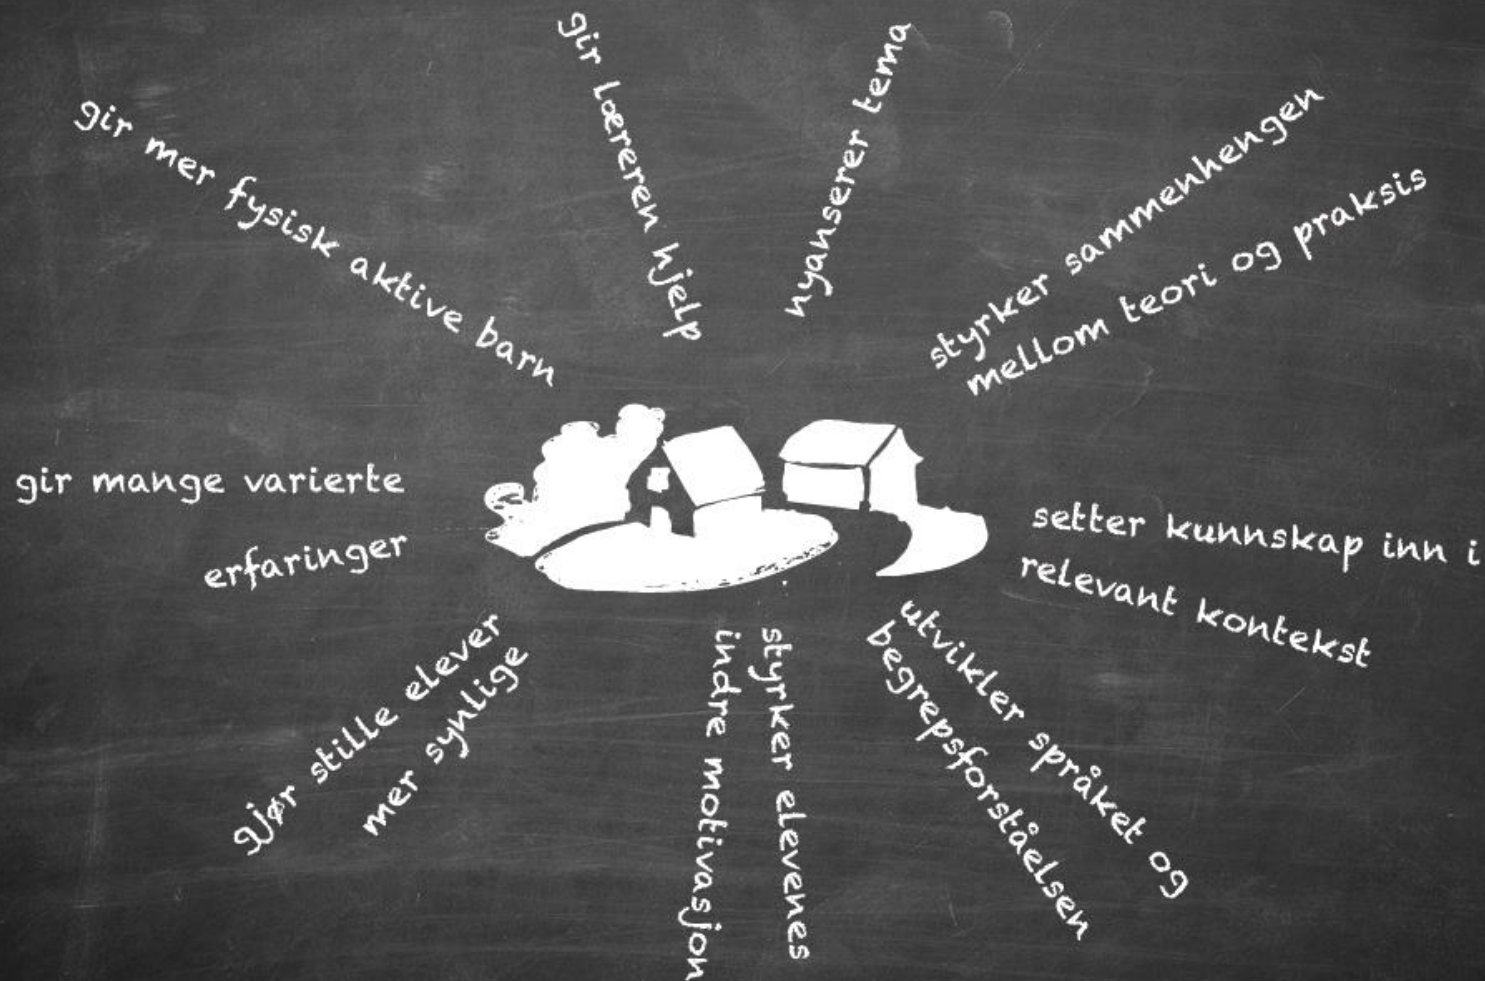 gir mer fysisk aktive barn
gir læreren hjelp
nyanserer tema
styrker sammenhengen
mellom teori og praksis
gir mange varierte
erfaringer
setter kunnskap inn i
relevant kontekst
gjør stille elever
mer synlige
styrker elevenes
indre motivasjon
utvikler språket og
begrepsforståelsen